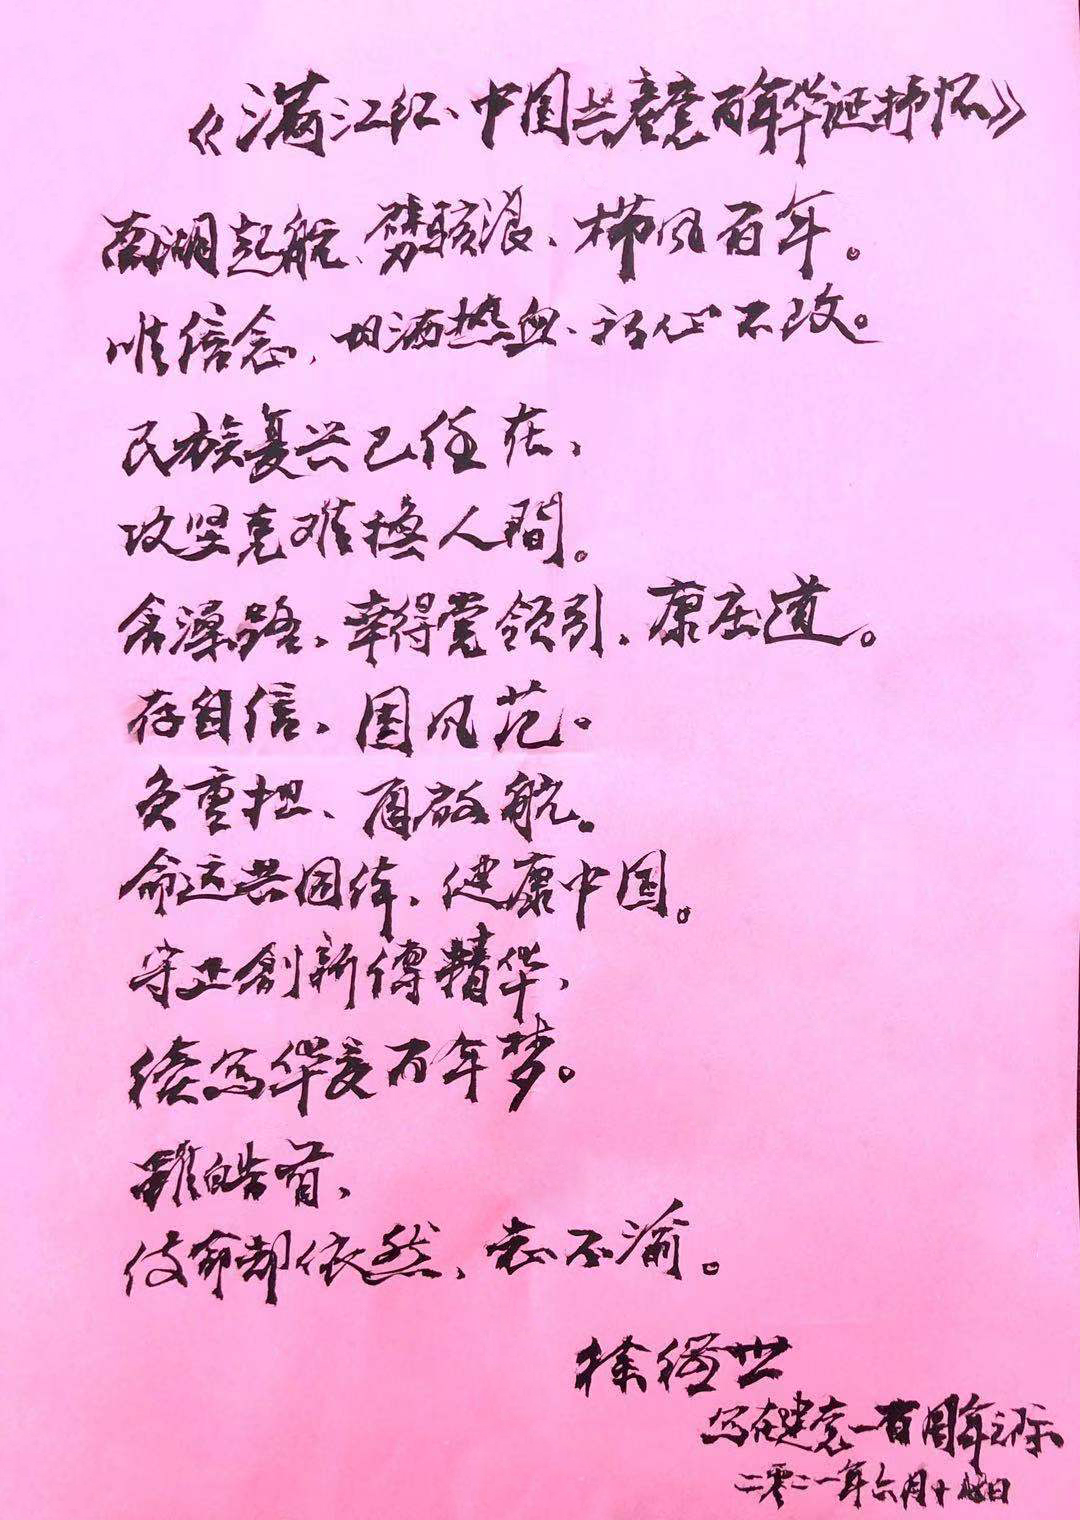 《满江红、中国共产党百年华诞抒怀》
南湖起航、劈骇浪、栉风百年。
唯信念,切洒热血、初心不改。
民族复兴己任在,
攻坚克难换人間。
含潭路,幸得党领引,康庄道。
存自信,国风范。
负重担、再啟航。
命运共同体,健康中国。
守正創新傳精华,
续写华夏百年梦。
雖皓首,
使命却依然,志不渝。
徐經世
写在建党一百周年之际
二零二一年六月十 日